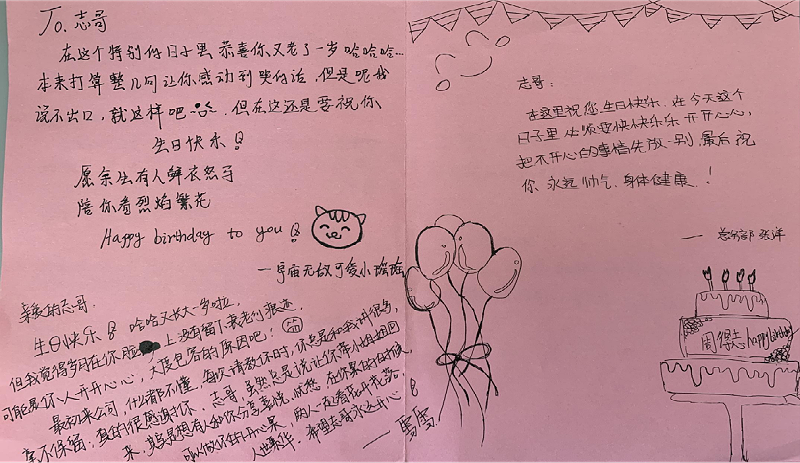 To. 志哥
在这个特别的日子里 恭喜你又老了一岁哈哈哈...
本来打算整几句让你感动到哭的话,但是呢我
说不出口,就这样吧 但在这还是要祝你
生日快乐!
愿余生有人鲜衣怒马
陪你看烈焰繁花
Happy birthday to you!
一宇宙无敌可爱小
亲爱的志哥:
生日快乐! 哈哈又长大一岁啦,
但我觉得岁月在你脸上没有留下衰老的痕迹
可能是你人开开心心,大度包容的原因吧!
最初来公司,什么都不懂,每次请教你时,你总是和我讲很多,
毫不保留;真的很感谢你.志哥,虽然总是说让你带小姐姐回
来,其实是想有人和你分享喜悦,忧愁.在你累的时候,
可以做你的开心果,两人一起看花开花落,
人世繁华.希望志哥永远开心!
一雪雪
志哥:
在这里祝您生日快乐.在今天这个
日子里 必须要快快乐乐 开开心心,
把不开心的事情先放一别,最后 祝
你 永远 帅气,身体健康.!
— 总务部 张洋
周得志 happy birthday